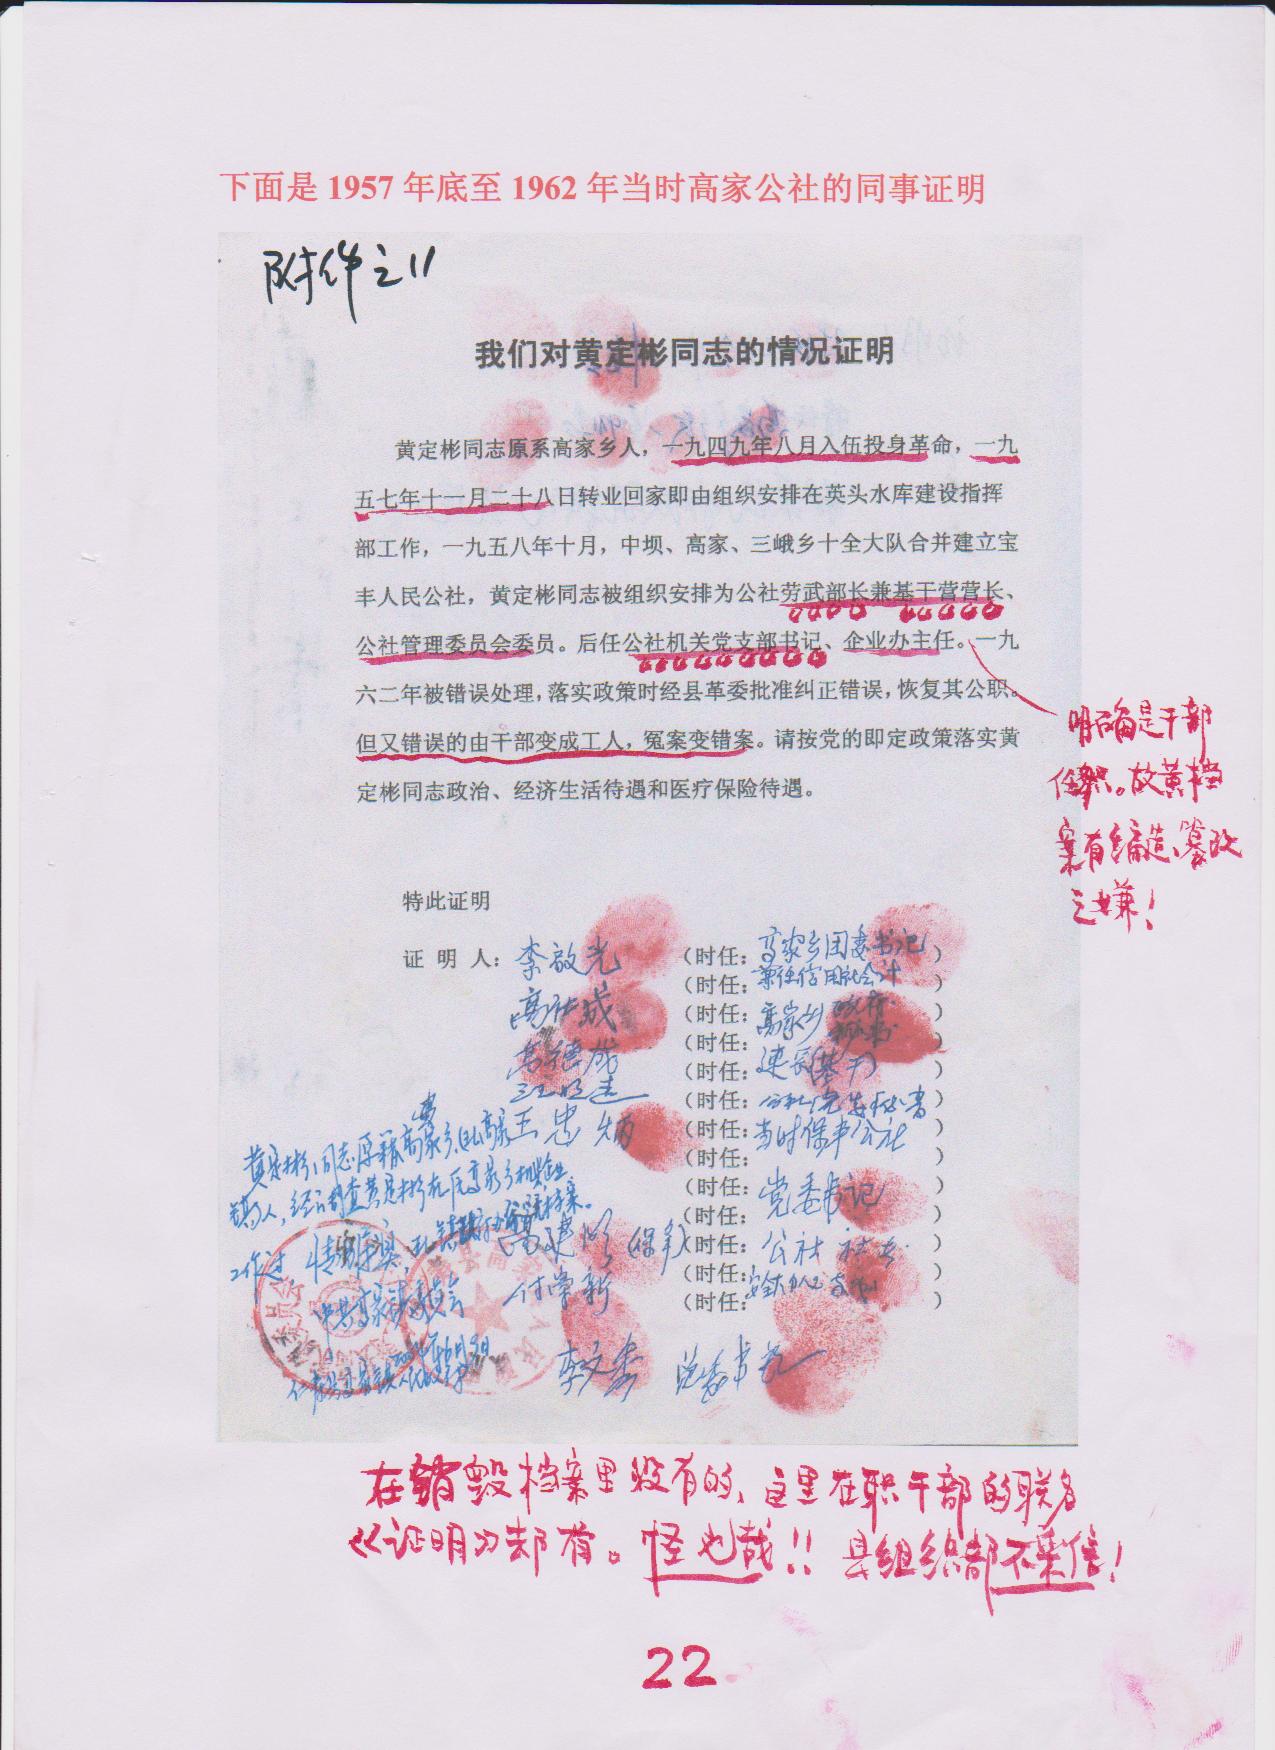 下面是 1957 年底至 1962 年当时高家公社的同事证明
附件之11
我们对黄定彬同志的情况证明
黄定彬同志原系高家乡人，一九四九年八月入伍投身革命，一九
五七年十一月二十八日转业回家即由组织安排在英头水库建设指挥
部工作，一九五八年十月，中坝、高家、三峨乡十全大队合并建立宝
丰人民公社，黄定彬同志被组织安排为公社劳武部长兼基干营营长、
公社管理委员会委员。后任公社机关党支部书记、企业办主任。一九
六二年被错误处理，落实政策时经县革委批准纠正错误，恢复其公职。
但又错误的由干部变成工人，冤案变错案。请按党的即定政策落实黄
定彬同志政治、经济生活待遇和医疗保险待遇。
明确是干部
任职。放黄档
案有编造、篡改
之嫌！
特此证明
证 明 人：李敬光（时任：高家乡团委书记）
（时任：兼任信用社会计）
（时任：高家乡政府）
（时任：秘书）
（时任：连长(基干)）
（时任：）
王忠炳（时任：当时保丰公社
（时任：）
（时任：党委书记）
（时任：）
高建明（保丰）（时任：公社社长）
付常新（时任：）
（时任：）
李文秀 党委书记
黄定彬同志原籍高家乡
工作过 情况属实
在销毁档案里没有的、这里在职干部的联名
《证明》却有。怪也哉！！县组织部不采信！
22